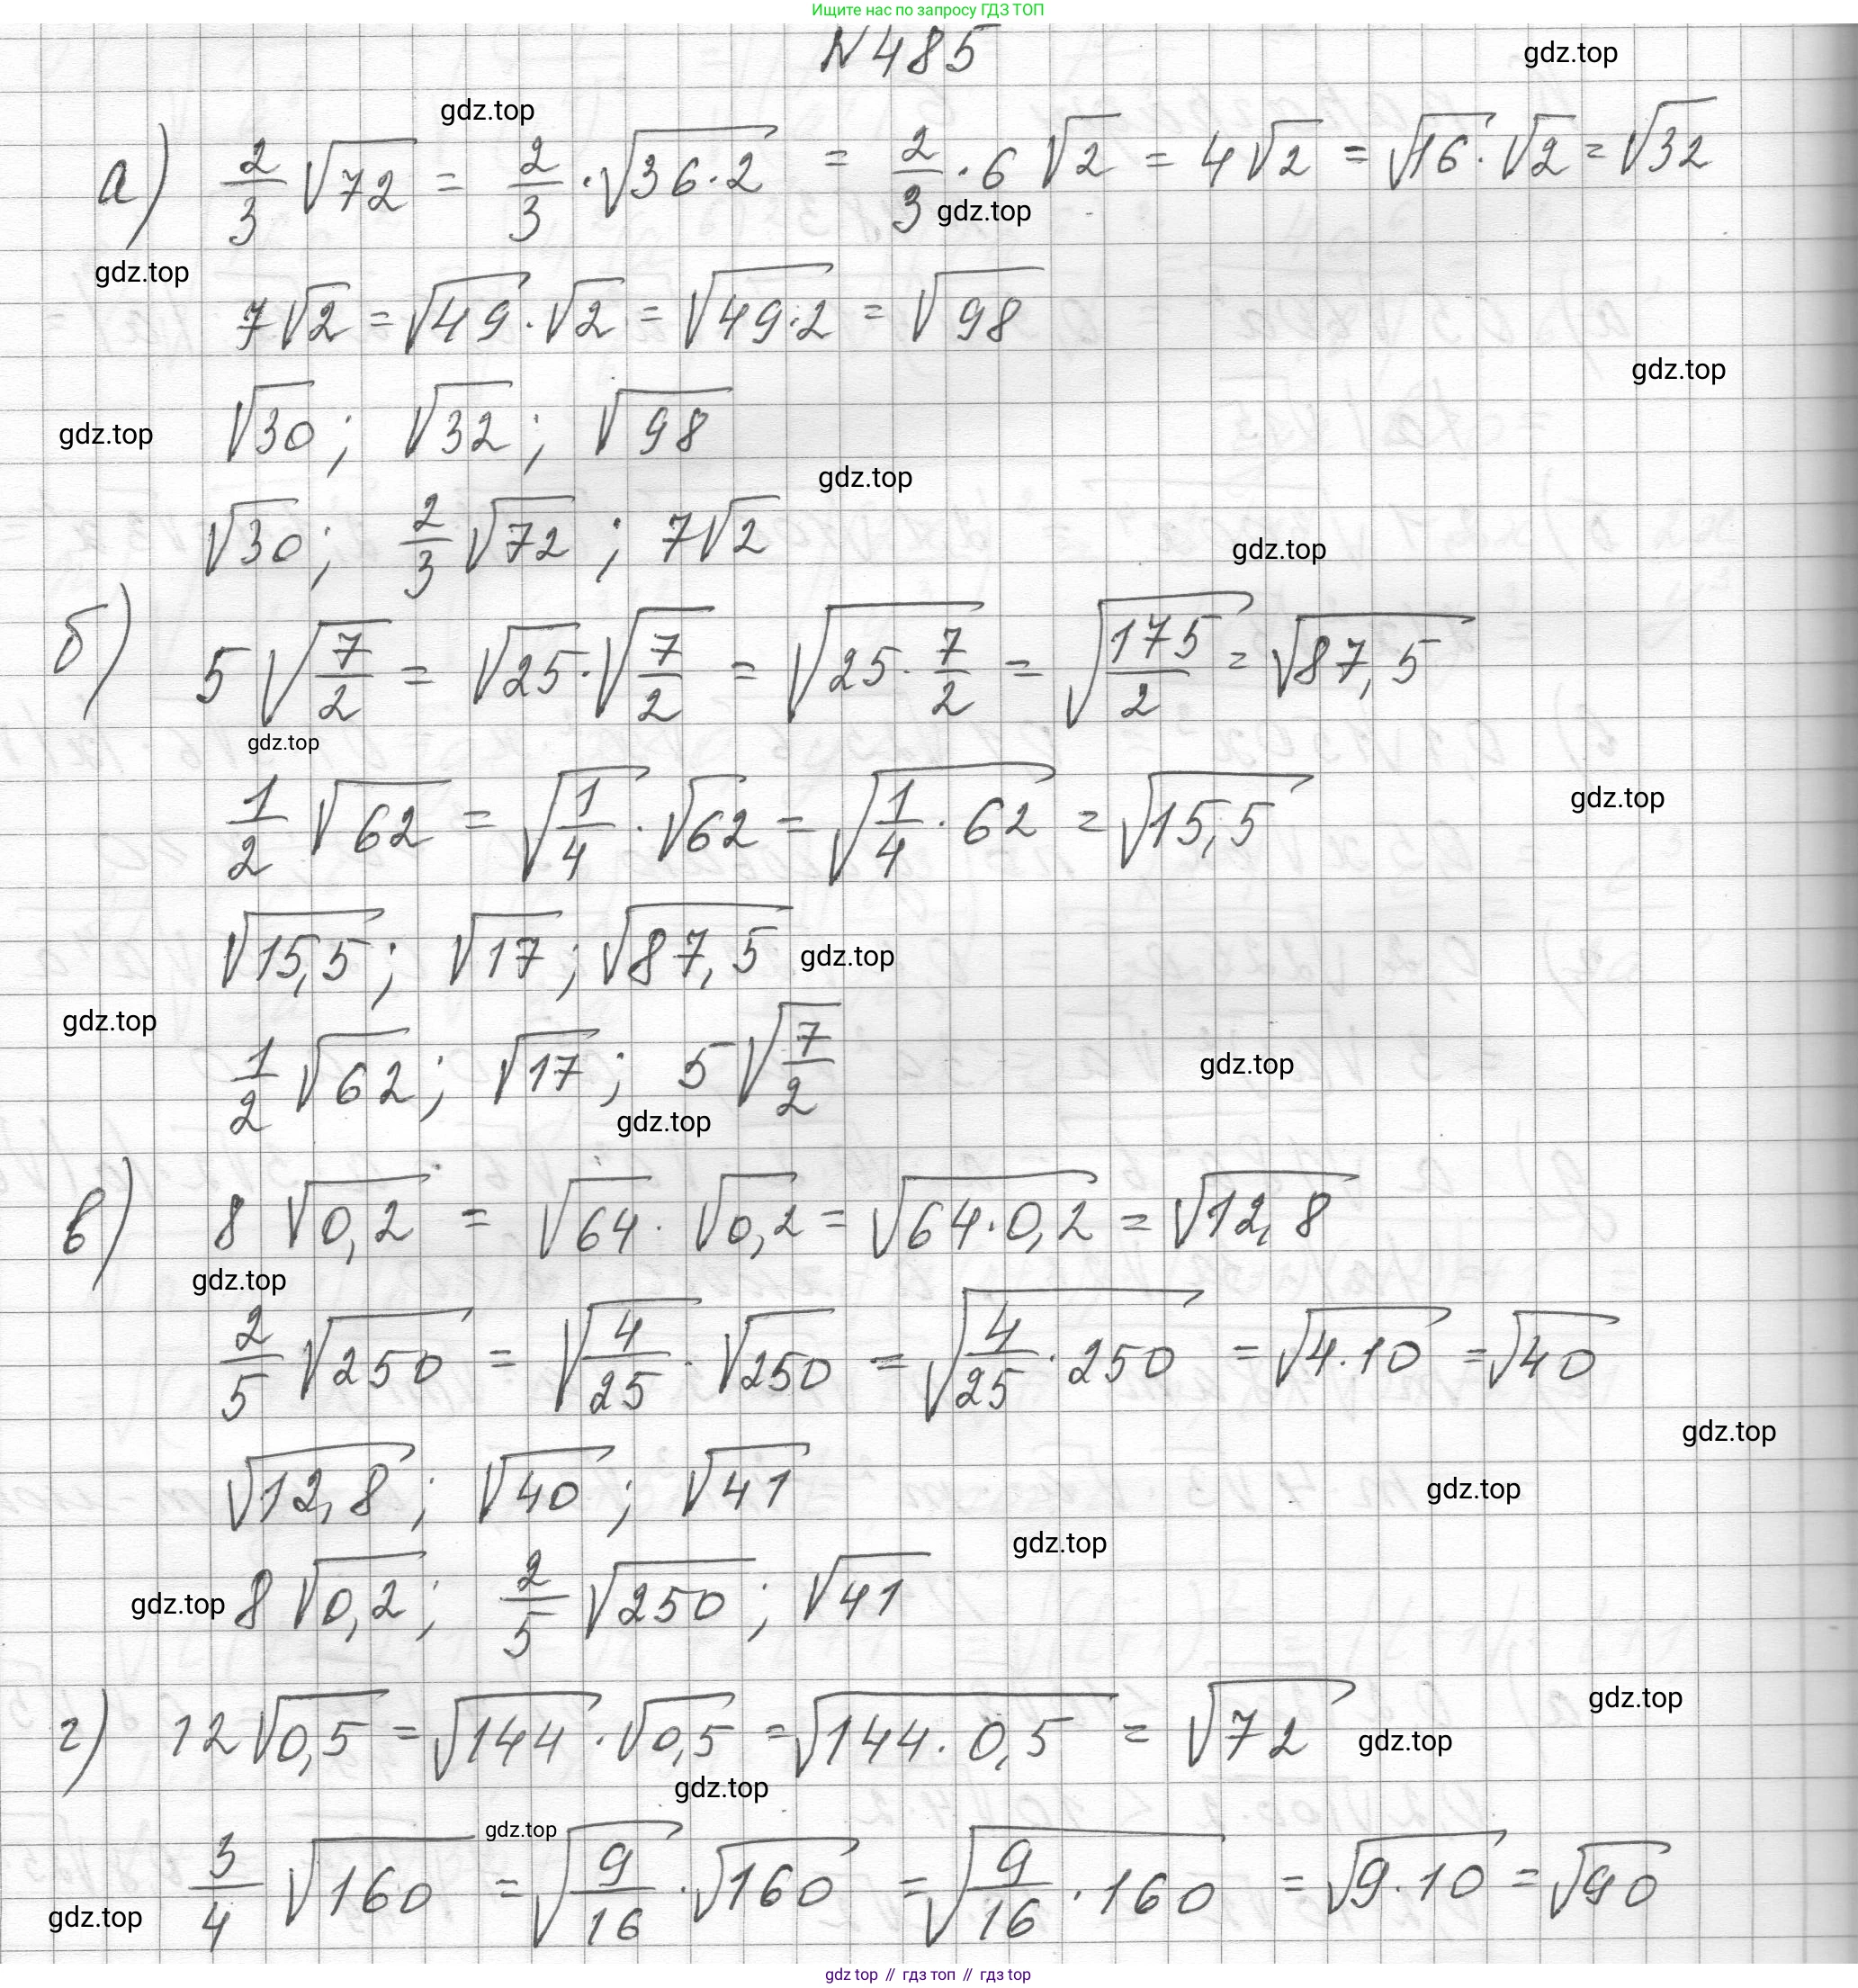 Ищите нас по запросу ГДЗ ТОП
N 485
gdz.top
gdz.top
а) 2/3 √72 = 2/3 · √36·2 = 2/3 · 6 √2 = 4√2 = √16 · √2 = √32
gdz.top
gdz.top
7√2 = √49 · √2 = √49·2 = √98
gdz.top
√30 ; √32 ; √98
gdz.top
gdz.top
√30 ; 2/3 √72 ; 7√2
gdz.top
б) 5 √7/2 = √25 · √7/2 = √25 · 7/2 = √175/2 = √87,5
gdz.top
1/2 √62 = √1/4 · √62 = √1/4 · 62 = √15,5
gdz.top
√15,5 ; √17 ; √87,5
gdz.top
gdz.top
1/2 √62 ; √17 ; 5 √7/2
gdz.top
gdz.top
в) 8 √0,2 = √64 · √0,2 = √64·0,2 = √12,8
gdz.top
2/5 √250 = √4/25 · √250 = √4/25 · 250 = √4·10 = √40
gdz.top
√12,8 ; √40 ; √41
gdz.top
gdz.top
gdz.top
8 √0,2 ; 2/5 √250 ; √41
gdz.top
г) 12√0,5 = √144 · √0,5 = √144 · 0,5 = √72
gdz.top
gdz.top
gdz.top
3/4 √160 = √9/16 · √160 = √9/16 · 160 = √9·10 = √90
gdz.top
gdz top // гдз топ // гдз top